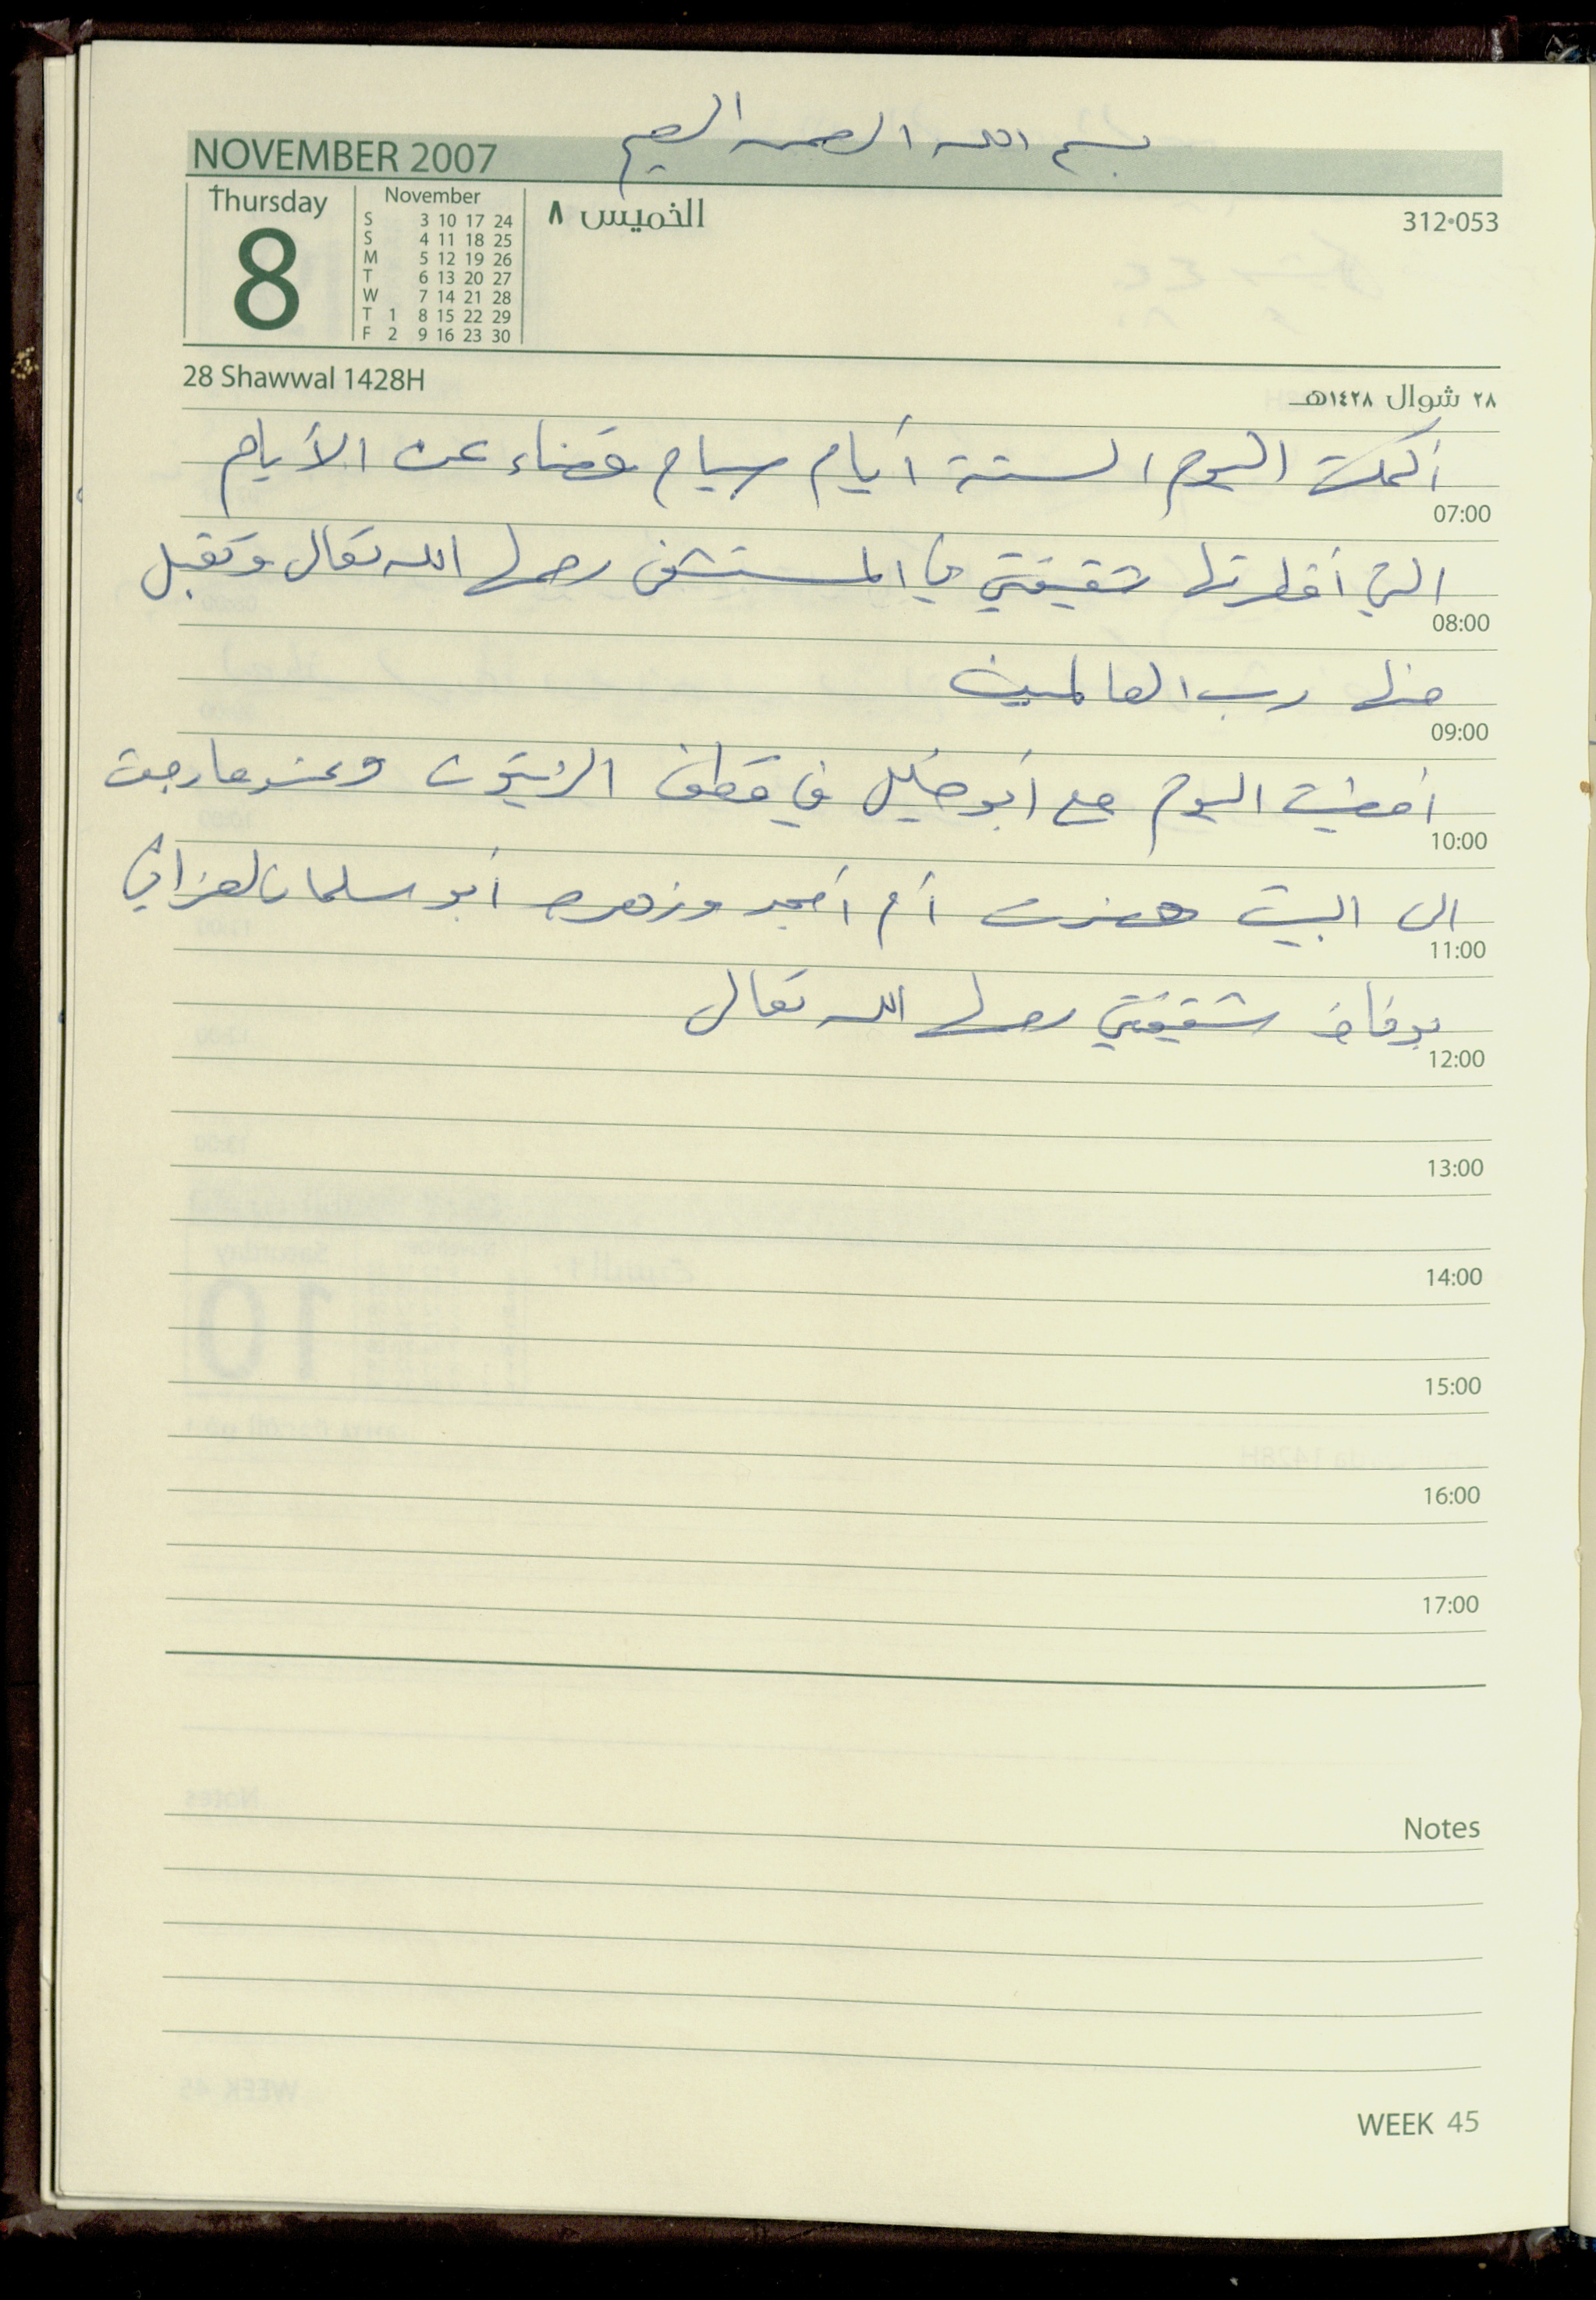 بسم الله الرحمن الرحيم
NOVEMBER 2007
Thursday
8
November
S 3 10 17 24
S 4 11 18 25
M 5 12 19 26
T 6 13 20 27
W 7 14 21 28
T 1 8 15 22 29
F 2 9 16 23 30
الخميس ٨
312•053
28 Shawwal 1428H
٢٨ شوال ١٤٢٨هـ
أكملت اليوم الستة أيام صيام قضاء عن الأيام
07:00
التي أفطرتها شقيقتي في المستشفى رحمها الله تعالى وتقبل
08:00
منها رب العالمين
09:00
أمضيت اليوم مع أبو خليل في قطف الزيتون وعندما رجعت
10:00
الى البيت أم أمجد وزهره أبو سلمان لعزائي
11:00
بوفاة شقيقتي رحمها الله تعالى
12:00
13:00
14:00
15:00
16:00
17:00
Notes
WEEK 45